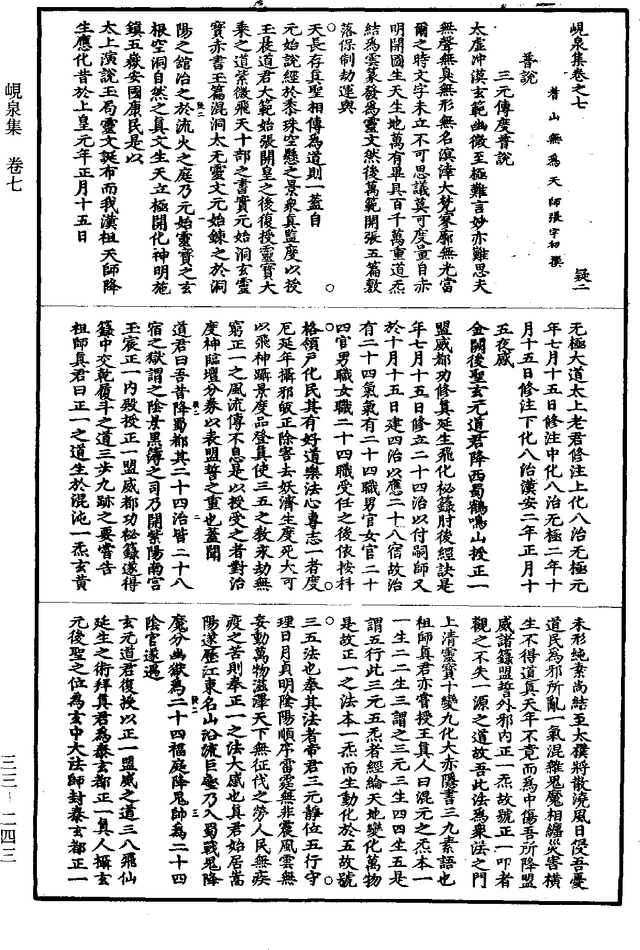 峴泉集卷之七
疑二
耆山無為天師張宇初撰
普說
三元傳度普說
太虛沖漠玄範幽微至極難言妙亦難思夫
無聲無臭無形無名溟涬大梵寥廓無光當
爾之時文字未立不可思議莫可度量自赤
明開圖生天生地萬有畢具百千萬重道炁
結為雲篆發為靈文然後萬範開張五篇敷
落保制劫運與
天長存真聖相傳為道則一蓋自
元始說經於黍珠空懸之景泉真監度以授
玉晨道君大範始張開皇之後復授靈寶大
乘之道紫微飛天十部之書實元始洞玄靈
寶赤書玉篇混洞太无靈文元始鍊之於洞
陽之館冶之於流火之庭乃元始靈寶之玄
根空洞自然之真文生天立極開化神明施
鎮五嶽安國康民是以
太上演說玉局靈文誕布而我漢祖天師降
生應化昔於上皇元年正月十五日
无極大道太上老君修注上化八治无極元
年七月十五日修注中化八治无極二年十
月十五日修注下化八治漢安二年正月十
五夜感
金闕後聖玄元道君降西蜀鶴鳴山授正一
盟威都功修真延生飛化秘籙肘後經訣是
年七月十五日修立二十四治以付嗣師又
於十月十五日建四治以應二十八宿故治
有二十四氣氣有二十四職男官女官二十
四官男職女職二十四職受任之後依按科
格領戶化民其有好道樂法心專志一者度
厄延年攝邪皈正除害去妖濟生度死大可
以飛神躡景度品登真使三五之教永劫無
窮正一之風流傳不息是以授受之者對治
度神臨壇分券以表盟誓之重也蓋聞
道君曰吾昔降蜀都其二十四治皆二十八
宿之獄謂之陰景黑簿之司乃開紫陽南宮
玉宸正一內殿授正一盟威都功秘籙遂得
籙中交乾履斗之道三步九跡之要嘗告
祖師真君曰正一之道生於混沌一炁玄黃
未形純素尚結至太樸將散澆風日侵吾憂
道民為邪所亂一氣混雜鬼魔相纏災害橫
生不得道真天年不竟而為中傷吾所降盟
威諸籙盟誓外邪內正一炁故號正一叩者
觀之不失一源之道故吾此法為乘法之門
上清靈寶十變九化大赤隱書三九素語也
祖師真君亦嘗授王真人曰混元之炁本一
一生二二生三謂之三元三生四四生五是
謂五行此三元五炁者經綸天地變化萬物
是故正一之法本一炁而生動化於五故號
三五法也奉其法者帝君三元靜位五行守
理日月貞明陰陽順序雷霆無非震風雲無
妄動萬物滋澤天下無征伐之勞人民無疾
疫之苦則奉正一之法大感也真君始居嵩
陽遂歷江東名山沿流巨壑乃入蜀戰鬼降
魔分幽獄為二十四福庭降鬼帥為二十四
陰官遂遇
玄元道君復授以正一盟威之道三八飛仙
延生之術拜真君為泰玄都正一真人攝玄
元後聖之位為玄中大法師封泰玄都正一
峴泉集　卷七
三三－二四三